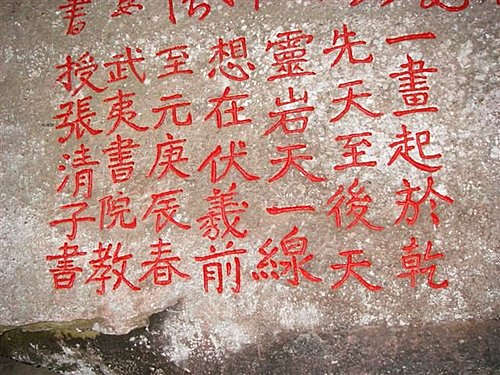 一畫起於乾
先天至後天
靈岩天一線
想在伏羲前
至元庚辰春
武夷書院教
授張清子書